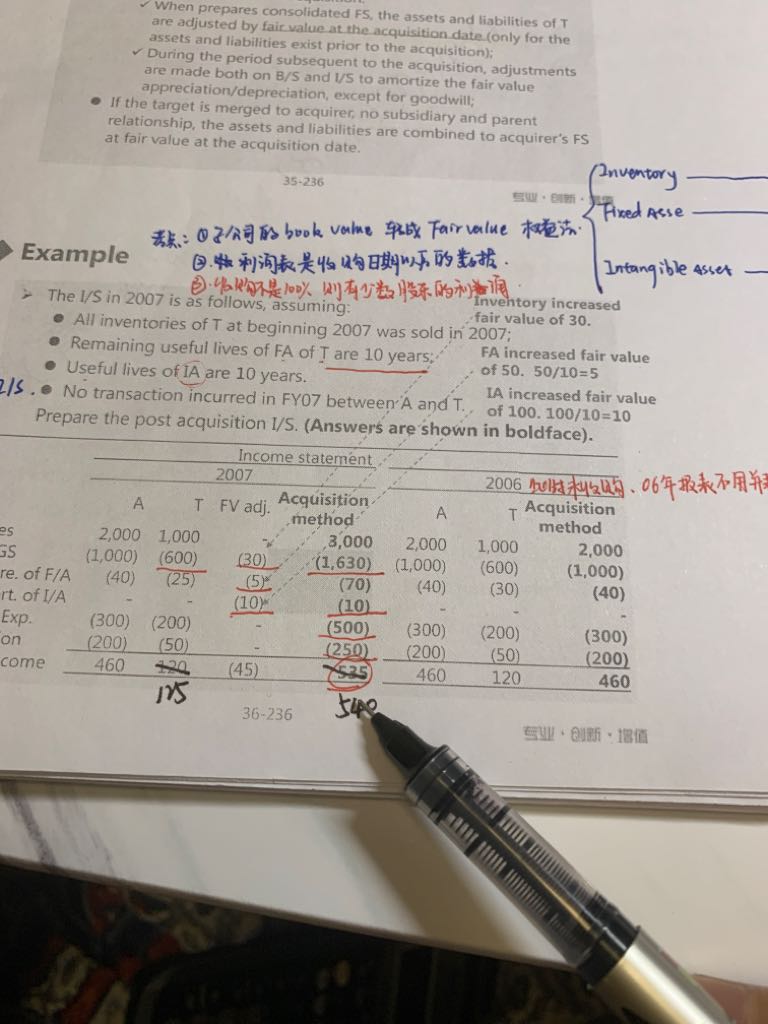 ✓ When prepares consolidated FS, the assets and liabilities of T
are adjusted by fair value at the acquisition date (only for the
assets and liabilities exist prior to the acquisition);
✓ During the period subsequent to the acquisition, adjustments
are made both on B/S and I/S to amortize the fair value
appreciation/depreciation, except for goodwill;
● If the target is merged to acquirer, no subsidiary and parent
relationship, the assets and liabilities are combined to acquirer's FS
at fair value at the acquisition date.
35-236
专业·创新·增值
Inventory
Fixed Asse
Intangible Asset
① 子公司的 book value 转成 Fair value
② 利润表是收购日期以后的数据.
③ 收购不是100% 则有少数股东的
Example
➢ The I/S in 2007 is as follows, assuming:
Inventory increased
fair value of 30.
● All inventories of T at beginning 2007 was sold in 2007;
● Remaining useful lives of FA of T are 10 years;
FA increased fair value
of 50. 50/10=5
● Useful lives of IA are 10 years.
IA increased fair value
of 100. 100/10=10
I/S.
● No transaction incurred in FY07 between A and T.
Prepare the post acquisition I/S. (Answers are shown in boldface).
Income statement
2007 2006
06年报表不用并
A T FV adj. Acquisition method A T Acquisition method
es 2,000 1,000 - 3,000 2,000 1,000 2,000
GS (1,000) (600) (30) (1,630) (1,000) (600) (1,000)
re. of F/A (40) (25) (5) (70) (40) (30) (40)
rt. of I/A - - (10) (10) - - -
Exp. (300) (200) - (500) (300) (200) (300)
on (200) (50) - (250) (200) (50) (200)
come 460 120 (45) 535 460 120 460
125 540
36-236
专业·创新·增值